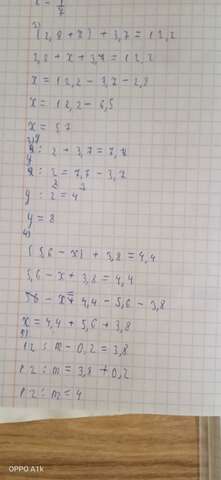 x - 1/7
(2,8 + x) + 3,7 = 12,2
2,8 + x + 3,7 = 12,2
x = 12,2 - 3,7 - 2,8
x = 12,2 - 6,5
x = 5,7
: 2 + 3,7 = 7,7
: 2 = 7,7 - 3,7
y : 2 = 4
y = 8
4)
(5,6 - x) + 3,8 = 4,4
5,6 - x + 3,8 = 4,4
- x = 4,4 - 5,6 - 3,8
x = 4,4 + 5,6 + 3,8
: m - 0,2 = 3,8
: m = 3,8 + 0,2
: m = 4
OPPO A1k